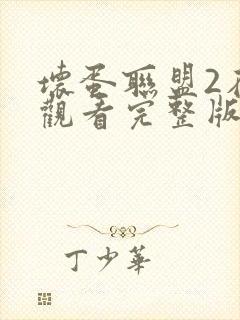 壞蛋聯盟2在
觀看完整版
丁少華